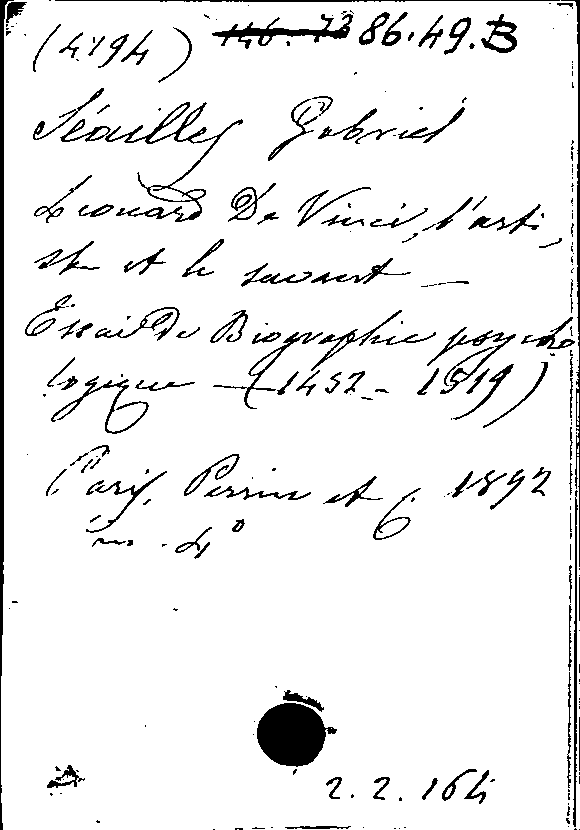 (4194) 146. 73 86.49.B
Séailles Gabriel
Léonard De Vinci, l'arti-
ste et le savant —
Essai De Biographie psycho
logique — (1452 - 1519)
Paris, Perrin et C. 1892
in - 4°
2. 2. 164